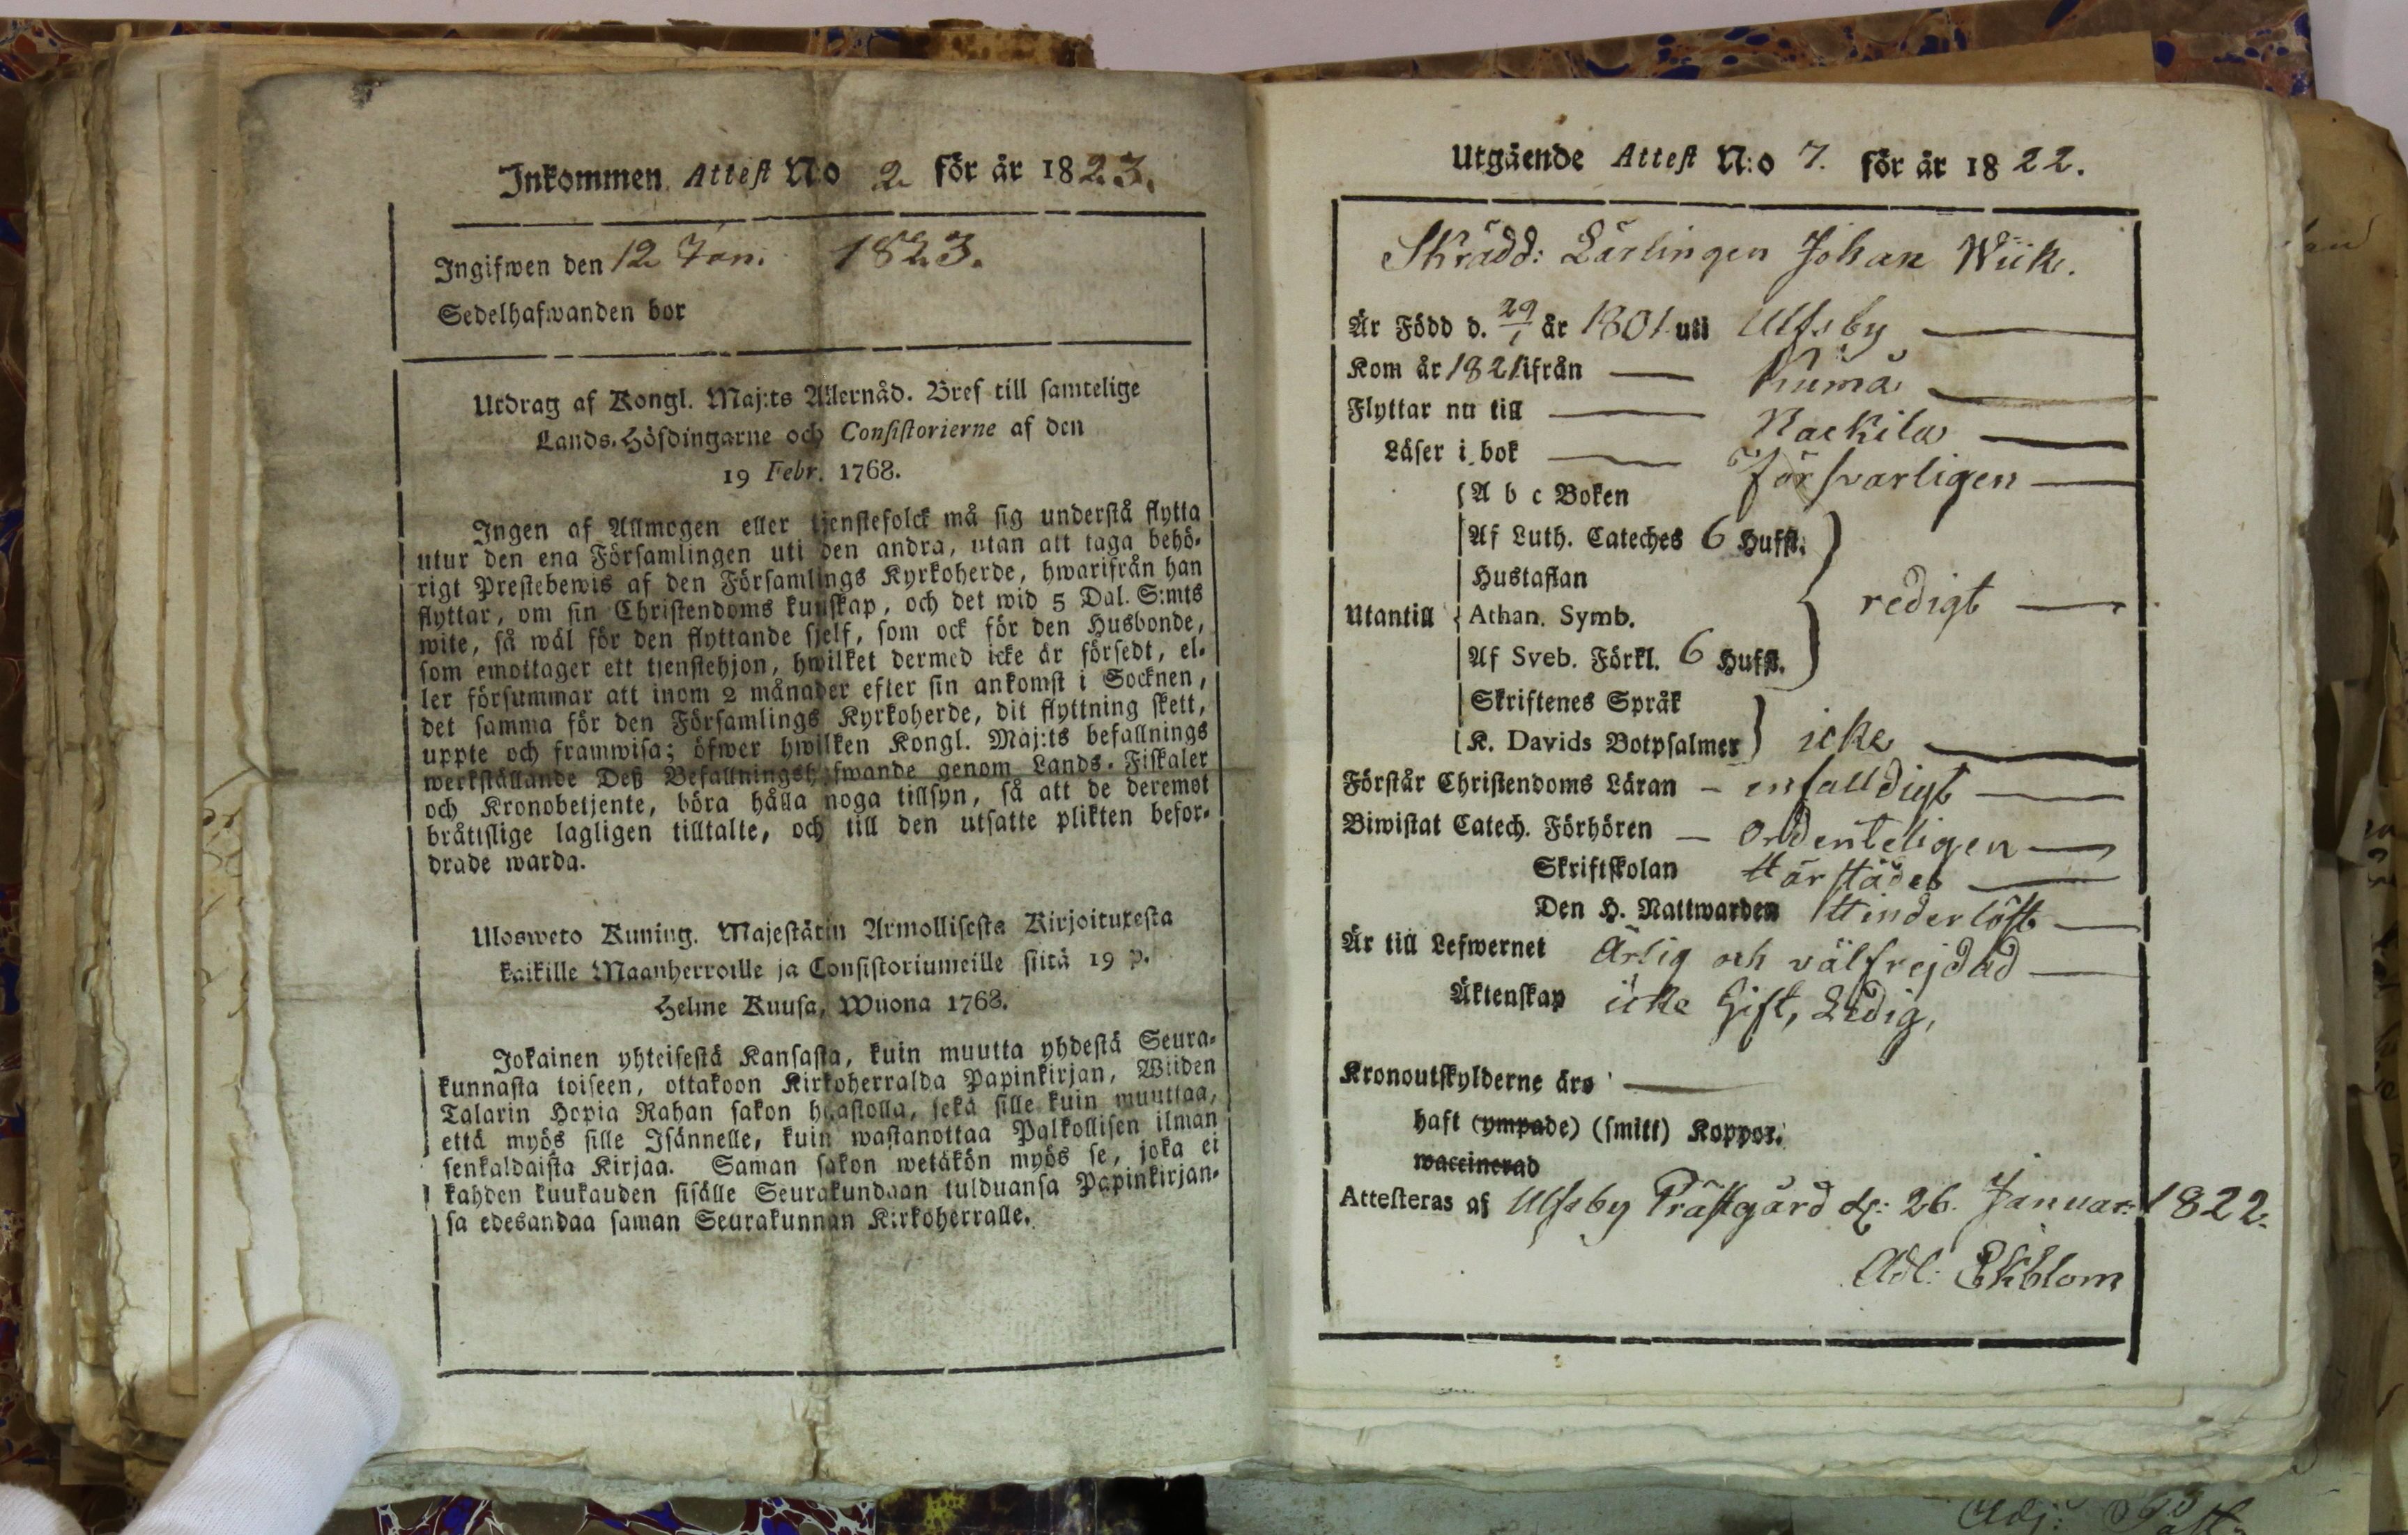 Inkommen Attest No 2 för år 1823.
Ingifwen den 12 Jan. 1823.
Sedelhafwanden bor
Utdrag af Kongl. Maj:ts Allernåd. Bref till samtelige
Lands-Höfdingarne och Consistorierne af den
19 Febr. 1768.
Ingen af Allmogen eller tjenstefolck må sig understå flytta
utur den ena Församlingen uti den andra, utan att taga behö-
rigt Prestebewis af den Församlings Kyrkoherde, hwarifrån han
flyttar, om sin Christendoms kunskap, och det wid 5 Dal. S:mts
wite, så wäl för den flyttande sjelf, som ock för den Husbonde,
som emottager ett tjenstehjon, hwilket dermed icke är försedt, el-
ler försummar att inom 2 månader efter sin ankomst i Socknen,
det samma för den Församlings Kyrkoherde, dit flyttning skett,
uppte och framwisa; öfwer hwilken Kongl. Maj:ts befallnings
werkställande Deß Befallningshafwande genom Lands-Fiskaler
och Kronobetjente, böra hålla noga tillsyn, så att de deremot
bråttslige lagligen tilltalte, och till den utsatte plikten befor-
drade warda.
Ulosweto Kuning. Majestätin Armollisesta Kirjoituxesta
kaikille Maanherroille ja Consistoriumeille siitä 19 p.
Helme Kuusa, Wuona 1768.
Jokainen yhteisestä Kansasta, kuin muutta yhdestä Seura-
kunnasta toiseen, ottakoon Kirkoherralda Papinkirjan, Wiiden
Talarin Hopia Rahan sakon haastolla, sekä sille kuin muuttaa,
että myös sille Isännelle, kuin wastanottaa Palkollisen ilman
senkaldaista Kirjaa. Saman sakon wetäkön myös se, joka ei
kahden kuukauden sisälle Seurakundaan tulduansa Papinkirjan-
sa edesandaa saman Seurakunnan Kirkoherralle.
Utgående Attest N:o 7. för år 1822.
Skrädd: Lärlingen Johan Wiik.
Är Född d. 29/1 år 1801 uti Ulfsby
Kom år 1821 ifrån — Kumå
Flyttar nu till — Nackila
Läser i bok — Försvarligen
A b c Boken
Af Luth. Cateches 6 Hufst.
Hustaflan
Utantill Athan. Symb. redigt
Af Sveb. Förkl. 6 Hufst.
Skriftenes Språk
K. Davids Botpsalmer icke
Förstår Christendoms Läran — enfalldigt
Biwistat Catech. Förhören — Ordenteligen
Skriftskolan Härstädes
Den H. Nattwarden Hinderlöst
Är till Lefwernet Ärlig och välfrejdad
Äktenskap icke Gift, Ledig,
Kronoutskylderne äro —
haft (ympade) (smitt) Koppor.
waccinerad
Attesteras af Ulfsby Prästgård d: 26. Januar: 1822.
Adl: Ekblom
Adj: